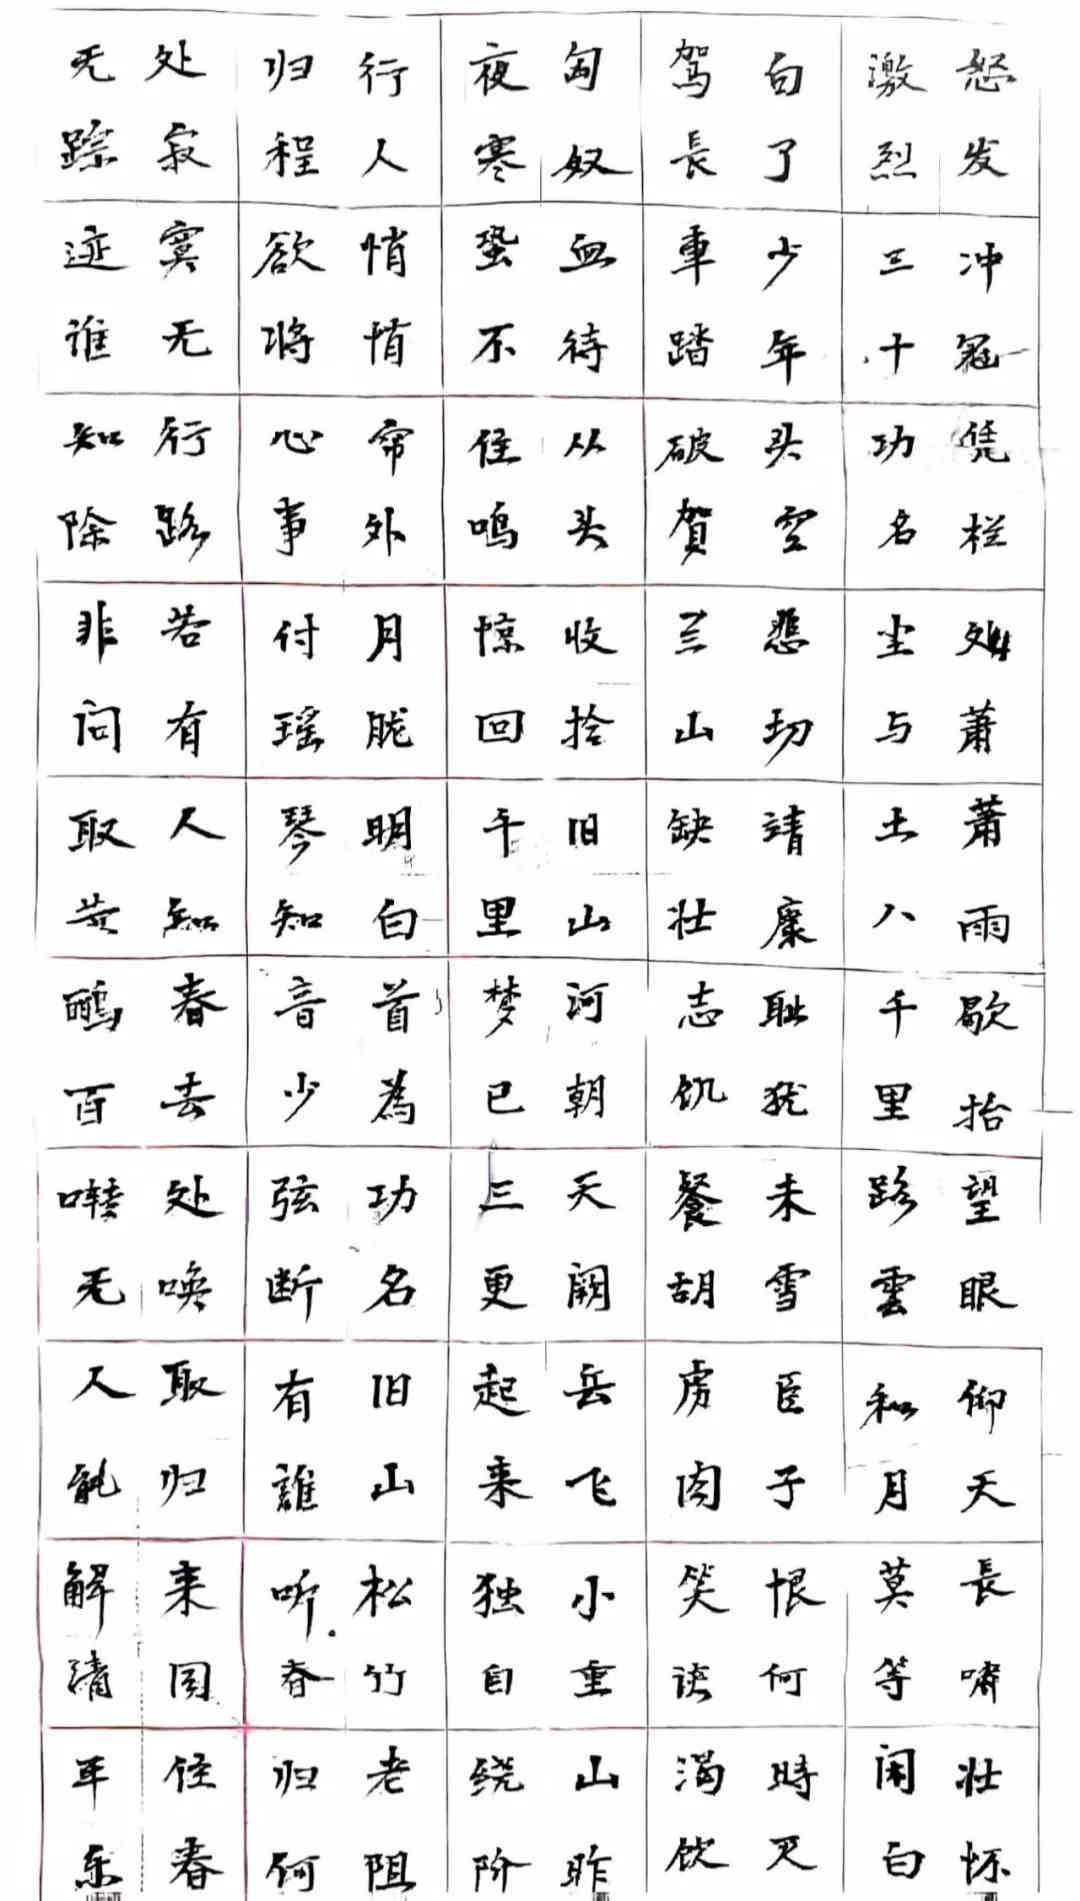 怒发冲冠凭栏处萧萧雨歇抬望眼仰天長啸壮怀
激烈三十功名尘与土八千里路雲和月莫等闲白
白了少年头空悲切靖康耻犹未雪臣子恨何時灭
驾長車踏破賀兰山缺壮志饥餐胡虏肉笑谈渴饮
匈奴血待从头收拾旧山河朝天阙岳飞小重山昨
夜寒蛩不住鸣惊回千里梦已三更起来独自绕阶
行人悄悄帘外月胧明白首為功名旧山松竹老阻
归程欲将心事付瑶琴知音少弦断有誰听春归何
处寂寞无行路若有人知春去处唤取归来同住春
无踪迹谁知除非问取黄鹂百啭无人能解清年东